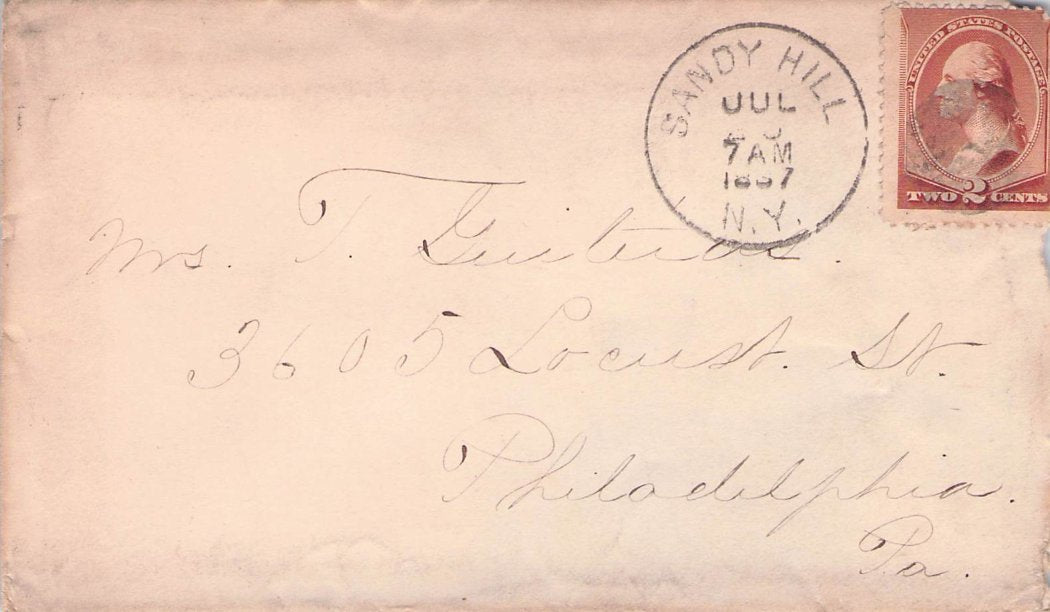 SANDY HILL
JUL
7AM
1887
N.Y.
UNITED STATES POSTAGE
TWO 2 CENTS
Mrs. T. Guiteras.
3605 Locust. St.
Philadelphia.
Pa.